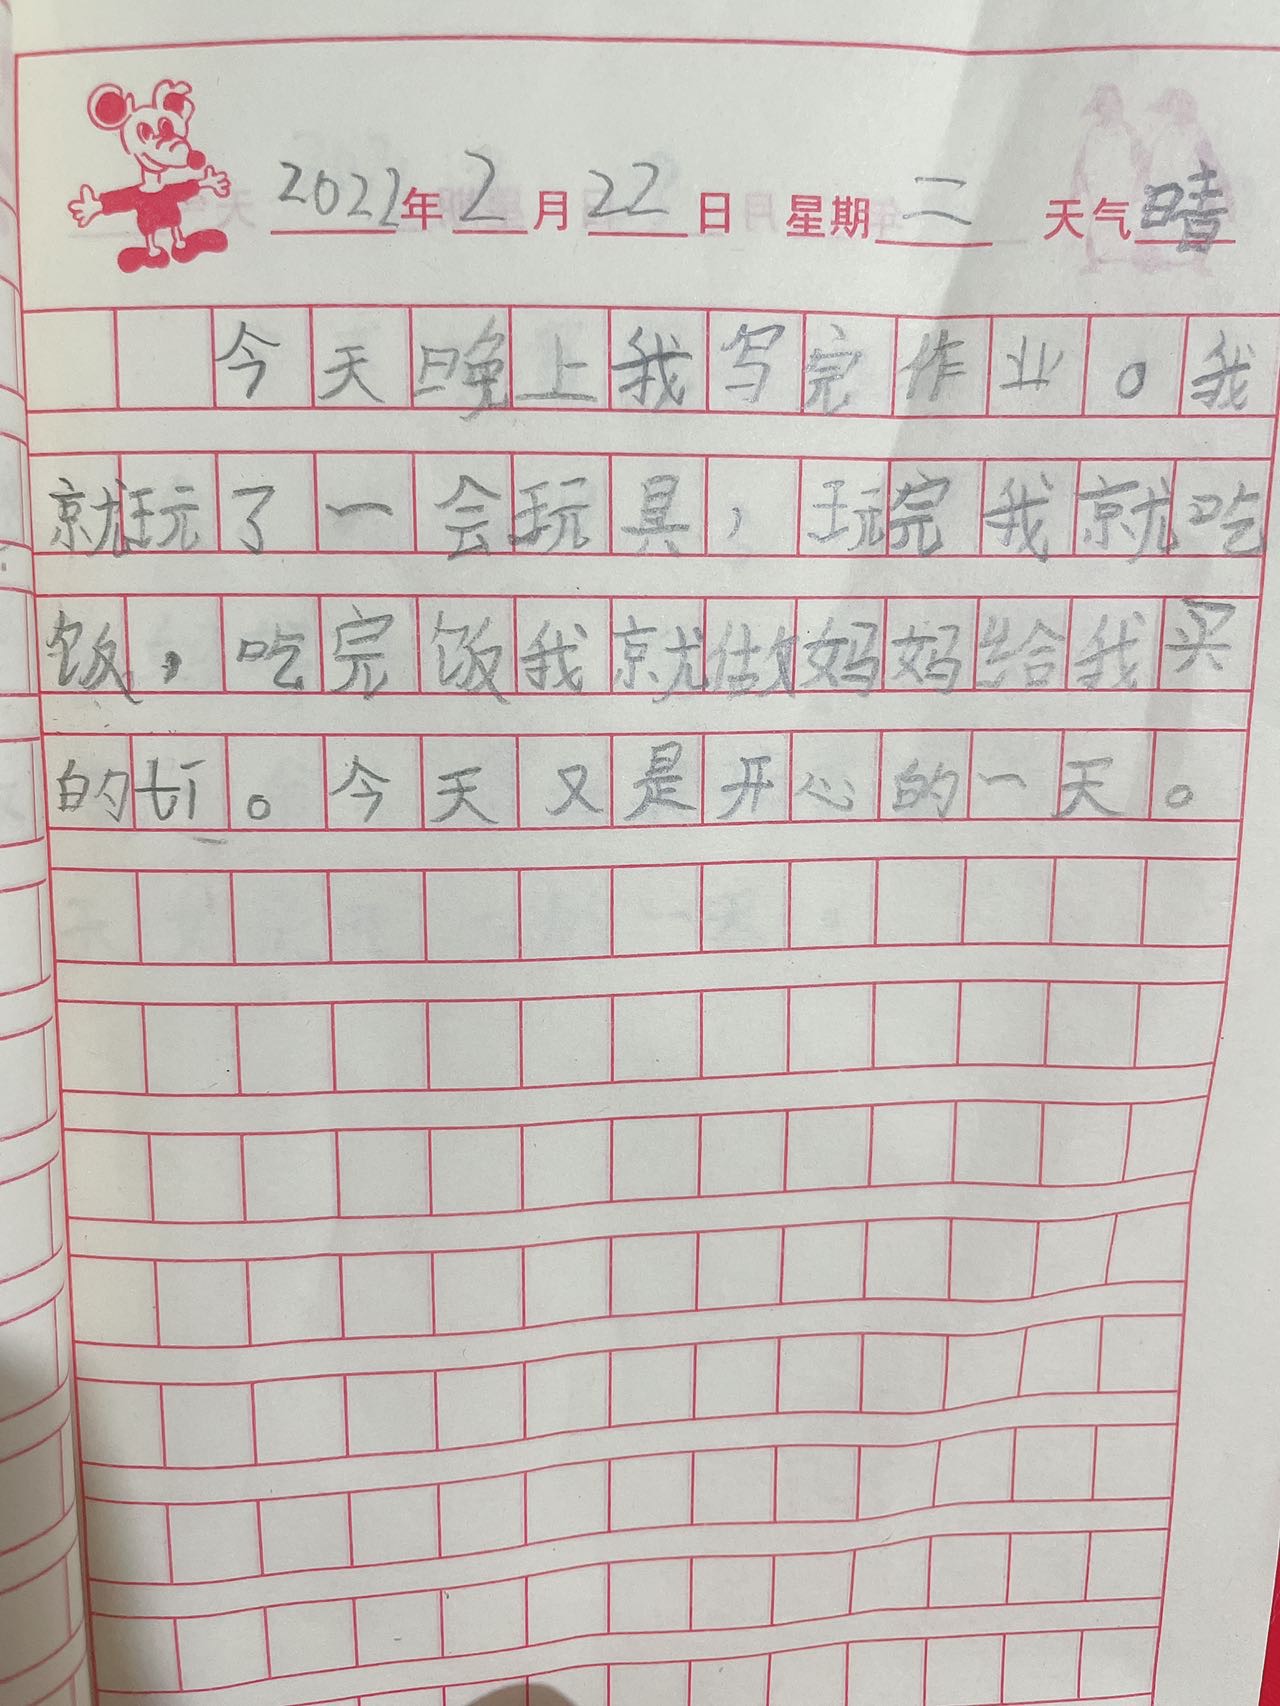 2022年2月22日 星期二 天气晴
今天晚上我写完作业。我
就玩了一会玩具，玩完我就吃
饭，吃完饭我就做妈妈给我买
的tí。今天又是开心的一天。